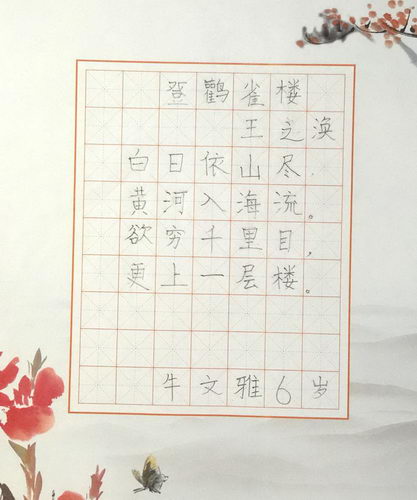 登鹳雀楼
王之涣
白日依山尽,
黄河入海流。
欲穷千里目,
更上一层楼。
牛文雅6岁